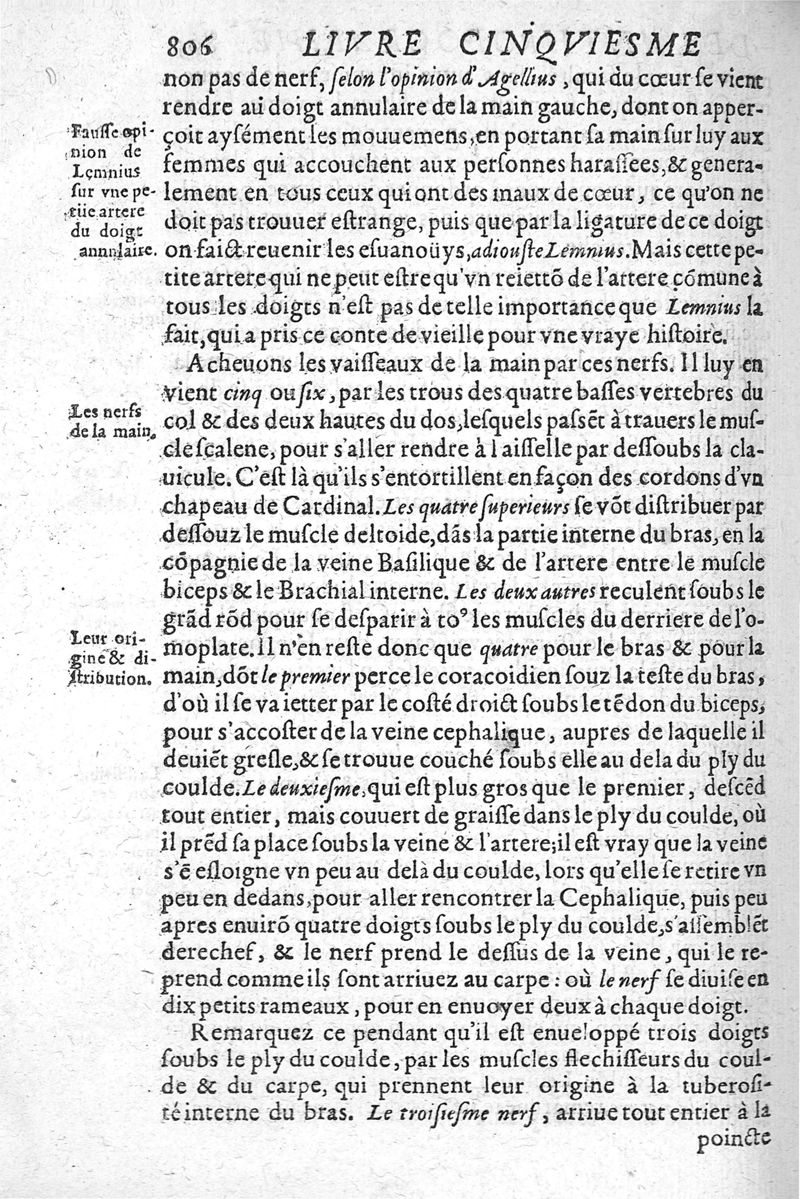 806 LIVRE CINQVIESME
non pas de nerf, ſelon l'opinion d'Agellius, qui du cœur ſe vient
rendre au doigt annulaire de la main gauche, dont on apper-
çoit ayſément les mouuemens, en portant ſa main ſur luy aux
femmes qui accouchent aux perſonnes haraſſees, & genera-
lement en tous ceux qui ont des maux de cœur, ce qu'on ne
doit pas trouuer eſtrange, puis que par la ligature de ce doigt
on faict reuenir les eſuanoüys, adiouſte Lemnius. Mais cette pe-
tite artere qui ne peut eſtre qu'vn reiettõ de l'artere cõmune à
tous les doigts n'eſt pas de telle importance que Lemnius la
fait, qui a pris ce conte de vieille pour vne vraye hiſtoire.
Fauſſe opi-
nion de
Lemnius
ſur vne pe-
tite artere
du doigt
annulaire.
Acheuons les vaiſſeaux de la main par ces nerfs. Il luy en
vient cinq ou ſix, par les trous des quatre baſſes vertebres du
col & des deux hautes du dos, leſquels paſsẽt à trauers le muſ-
cle ſcalene, pour s'aller rendre à l'aiſſelle par deſſoubs la cla-
uicule. C'eſt là qu'ils s'entortillent en façon des cordons d'vn
chapeau de Cardinal. Les quatre ſuperieurs ſe võt diſtribuer par
deſſouz le muſcle deltoide, dãs la partie interne du bras, en la
cõpagnie de la veine Baſilique & de l'artere entre le muſcle
biceps & le Brachial interne. Les deux autres reculent ſoubs le
grãd rõd pour ſe deſpartir à toꝰ les muſcles du derriere de l'o-
moplate. Il n'en reſte donc que quatre pour le bras & pour la
main, dõt le premier perce le coracoidien ſouz la teſte du bras,
d'où il ſe va ietter par le coſté droict ſoubs le tẽdon du biceps,
pour s'accoſter de la veine cephalique, aupres de laquelle il
deuiẽt greſle, & ſe trouue couché ſoubs elle au dela du ply du
coulde. Le deuxieſme, qui eſt plus gros que le premier, deſcẽd
tout entier, mais couuert de graiſſe dans le ply du coulde, où
il prẽd ſa place ſoubs la veine & l'artere; il eſt vray que la veine
s'ẽ eſloigne vn peu au delà du coulde, lors qu'elle ſe retire vn
peu en dedans, pour aller rencontrer la Cephalique, puis peu
apres enuirõ quatre doigts ſoubs le ply du coulde, s'aſſemblẽt
derechef, & le nerf prend le deſſus de la veine, qui le re-
prend comme ils ſont arriuez au carpe: où le nerf ſe diuiſe en
dix petits rameaux, pour en enuoyer deux à chaque doigt.
Les nerfs
de la main.
Leur ori-
gine & di-
ſtribution.
Remarquez ce pendant qu'il eſt enueloppé trois doigts
ſoubs le ply du coulde, par les muſcles flechiſſeurs du coul-
de & du carpe, qui prennent leur origine à la tuberoſi-
té interne du bras. Le troiſieſme nerf, arriue tout entier à la
poincte